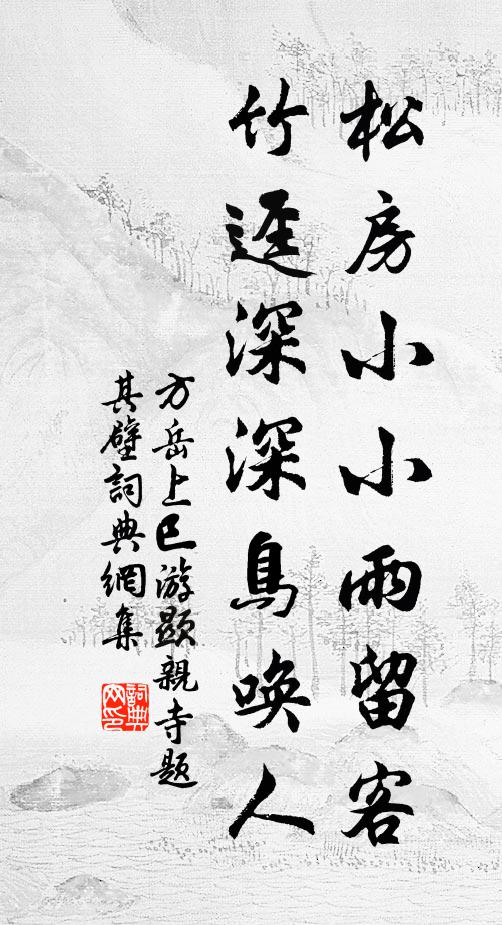 松房小小雨留客
竹逕深深鳥喚人
方岳上巳游顯親寺題
其壁詞典網集
詞典網印